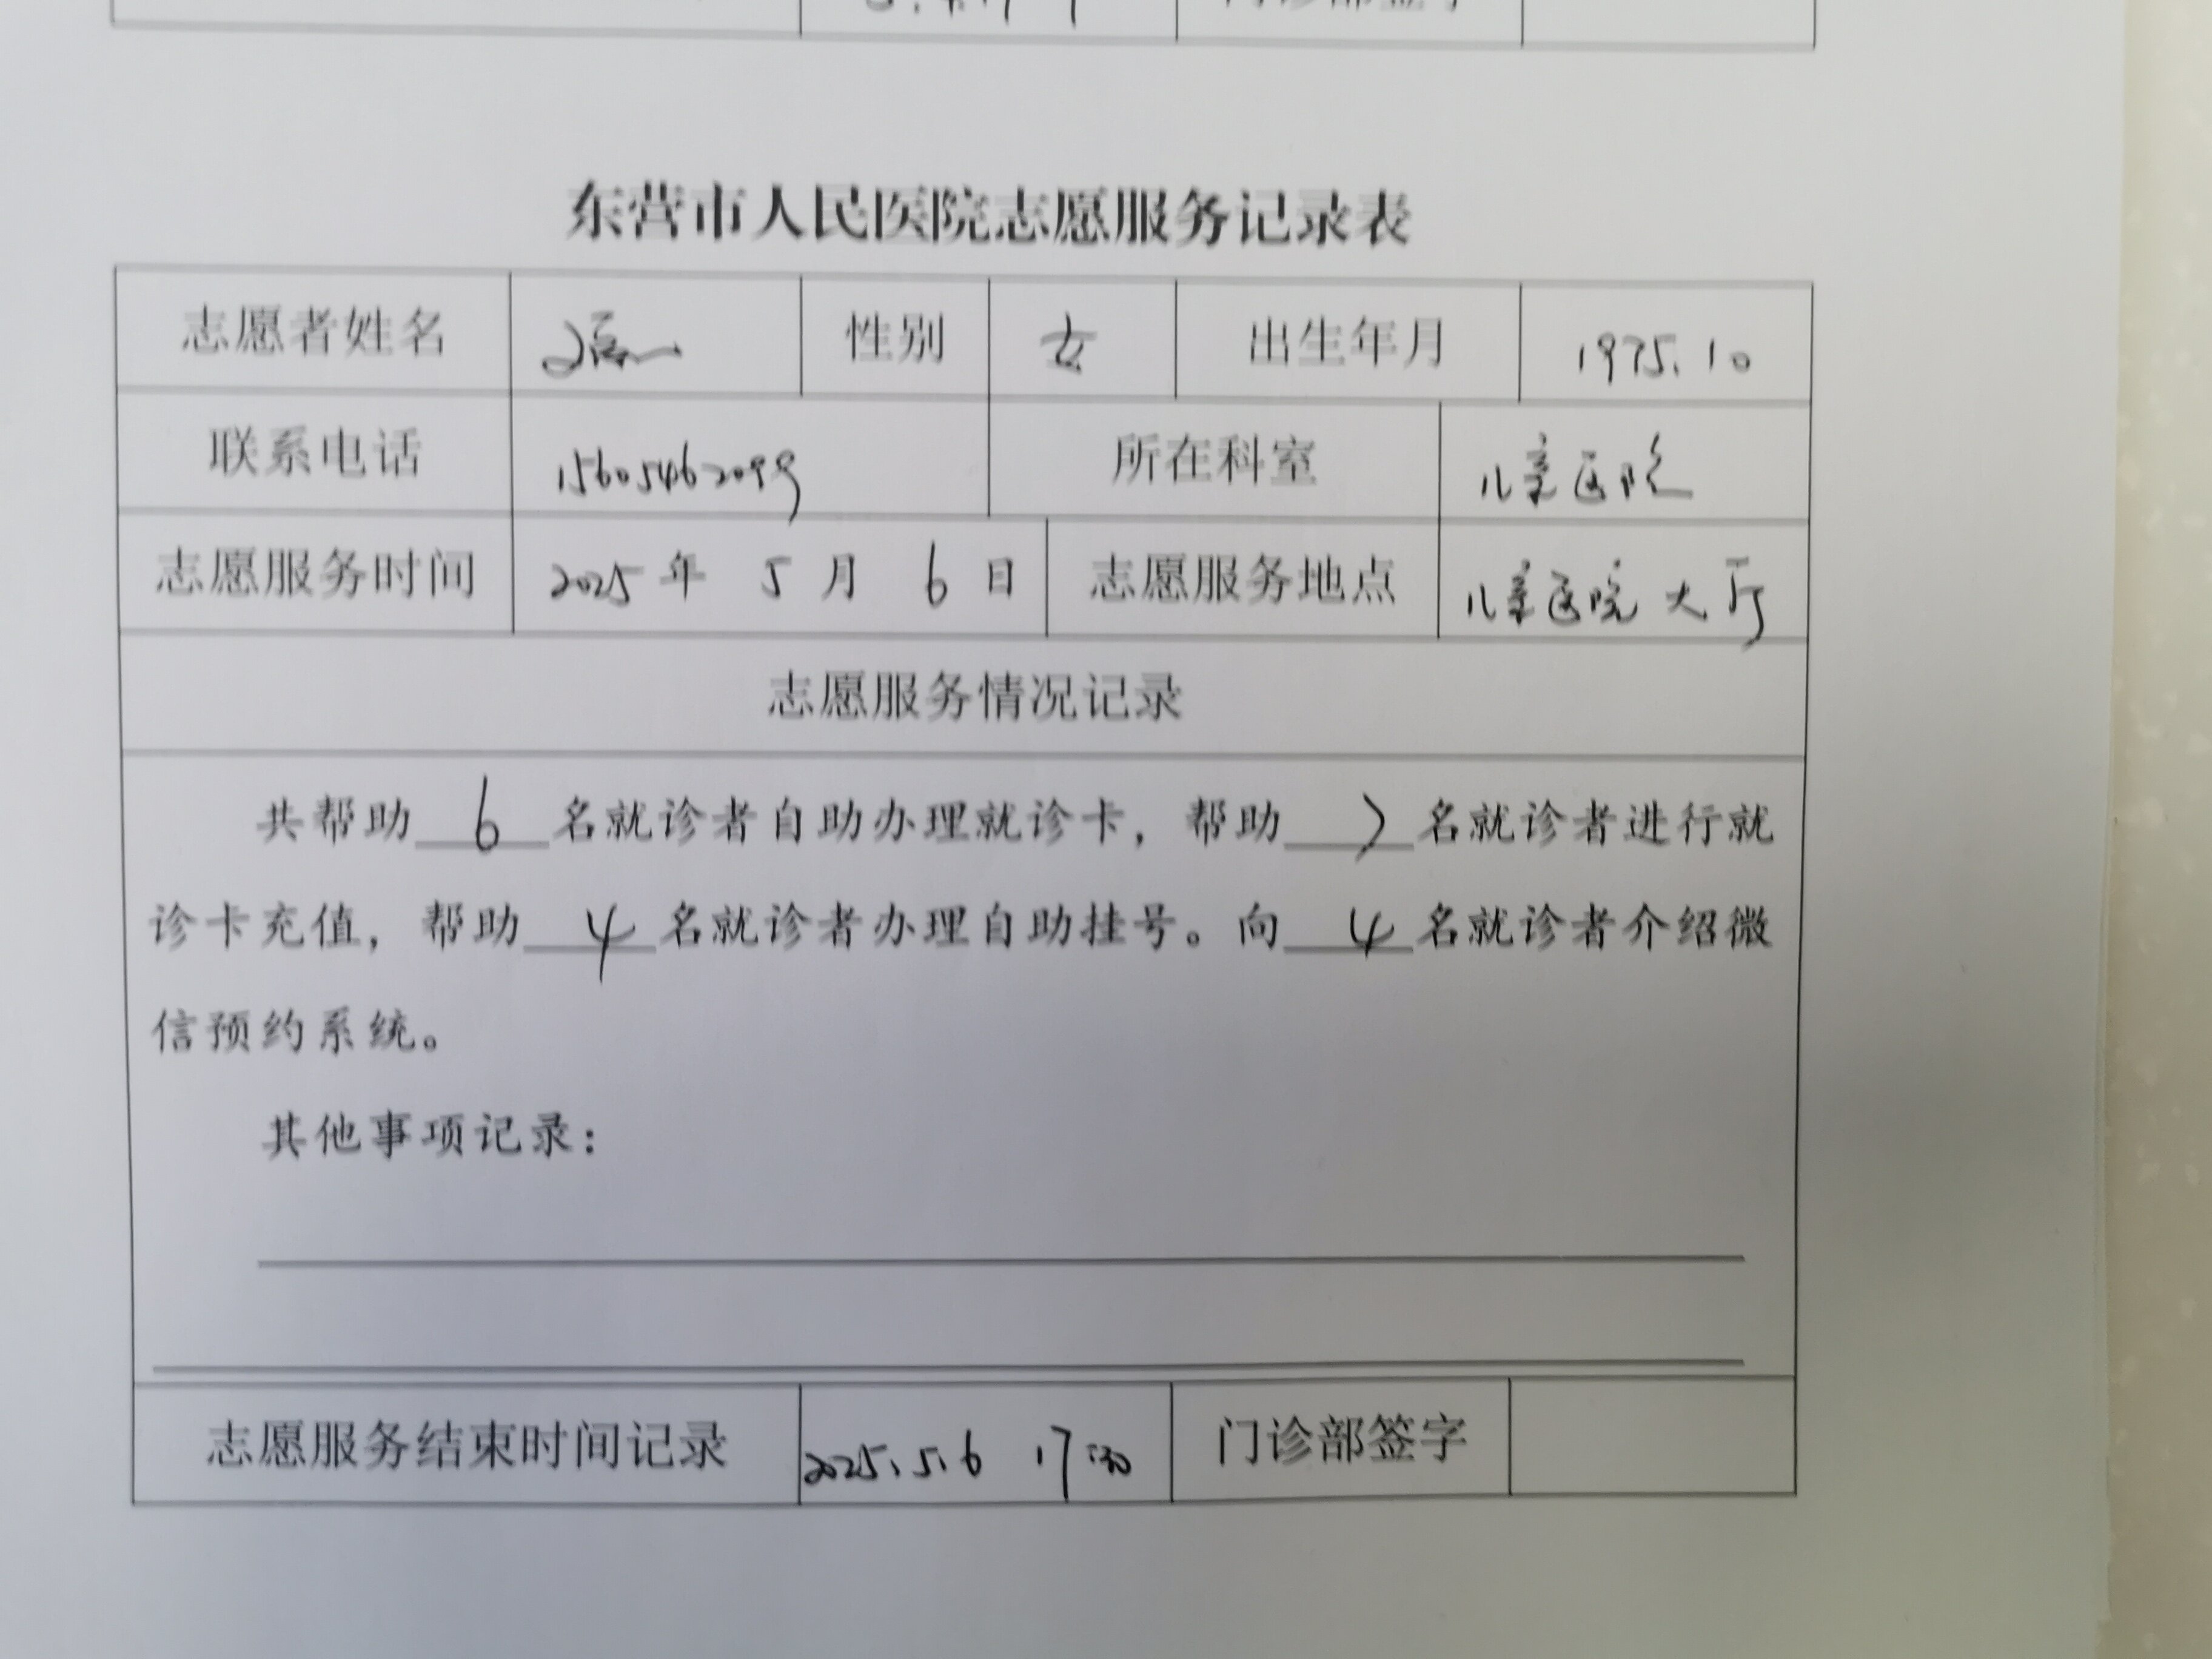 门诊部签字
东营市人民医院志愿服务记录表
志愿者姓名 性别 女 出生年月 1975.10
联系电话 15605462099 所在科室 儿童医院
志愿服务时间 2025年 5月 6日 志愿服务地点 儿童医院大厅
志愿服务情况记录
共帮助 6 名就诊者自助办理就诊卡，帮助 7 名就诊者进行就
诊卡充值，帮助 4 名就诊者办理自助挂号。向 4 名就诊者介绍微
信预约系统。
其他事项记录：
志愿服务结束时间记录 2025.5.6 17:30 门诊部签字